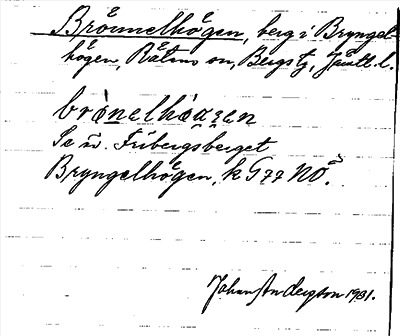 Brönnelhögen, berg i Bryngel-
högen, Rätans sn, Bergs tg, Jämtl. l.
Se u. Fribergsberget
Bryngelhögen, k G 77 NÖ.
Johan Andersson 1931.